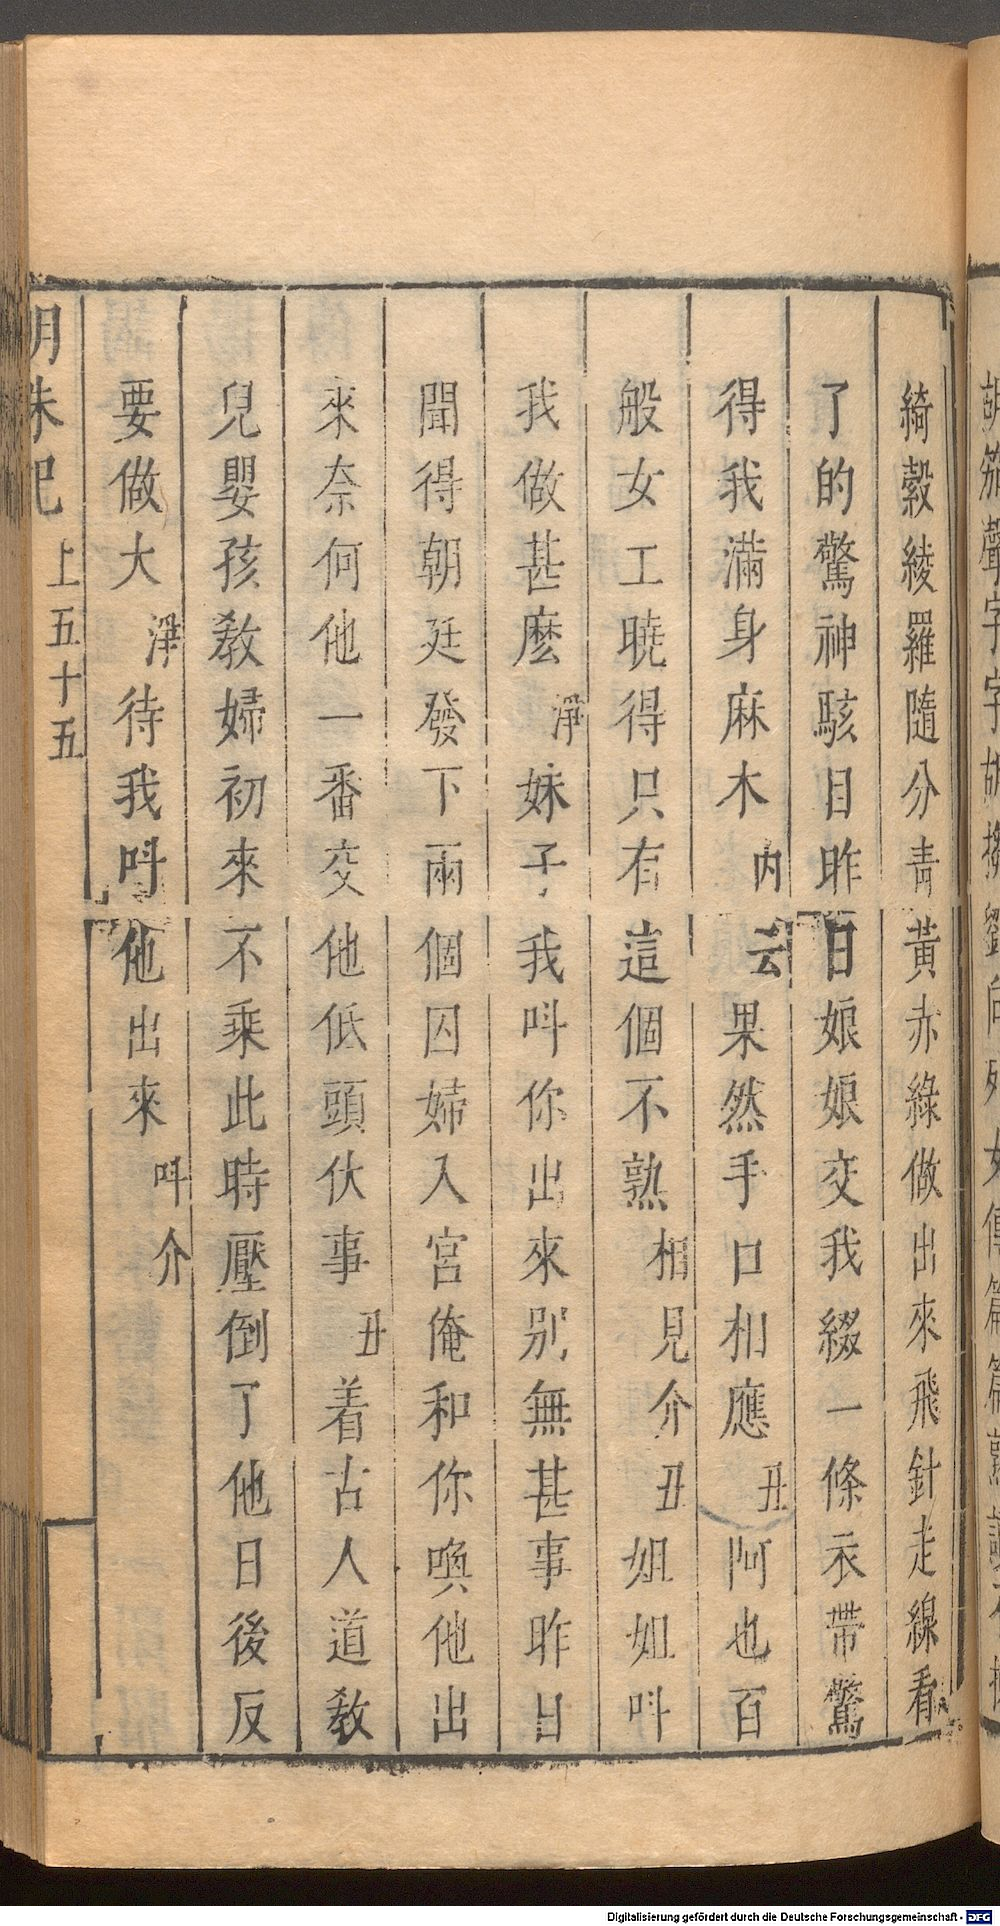 綺縠綾羅隨分青黃赤綠做出來飛針走線看
了的驚神駭目昨日娘娘交我綴一條衣帶驚
得我滿身麻木內云果然手口相應丑阿也百
般女工曉得只有這個不熟相見介丑姐姐呌
我做甚麼淨妹子我呌你出來別無甚事昨日
聞得朝廷發下兩個囚婦入宮俺和你喚他出
來奈何他一番交他低頭伏事丑着古人道教
兒嬰孩教婦初來不乘此時壓倒了他日後反
要做大淨待我呌他出來呌介
明珠記 上五十五
Digitalisierung gefördert durch die Deutsche Forschungsgemeinschaft - DFG